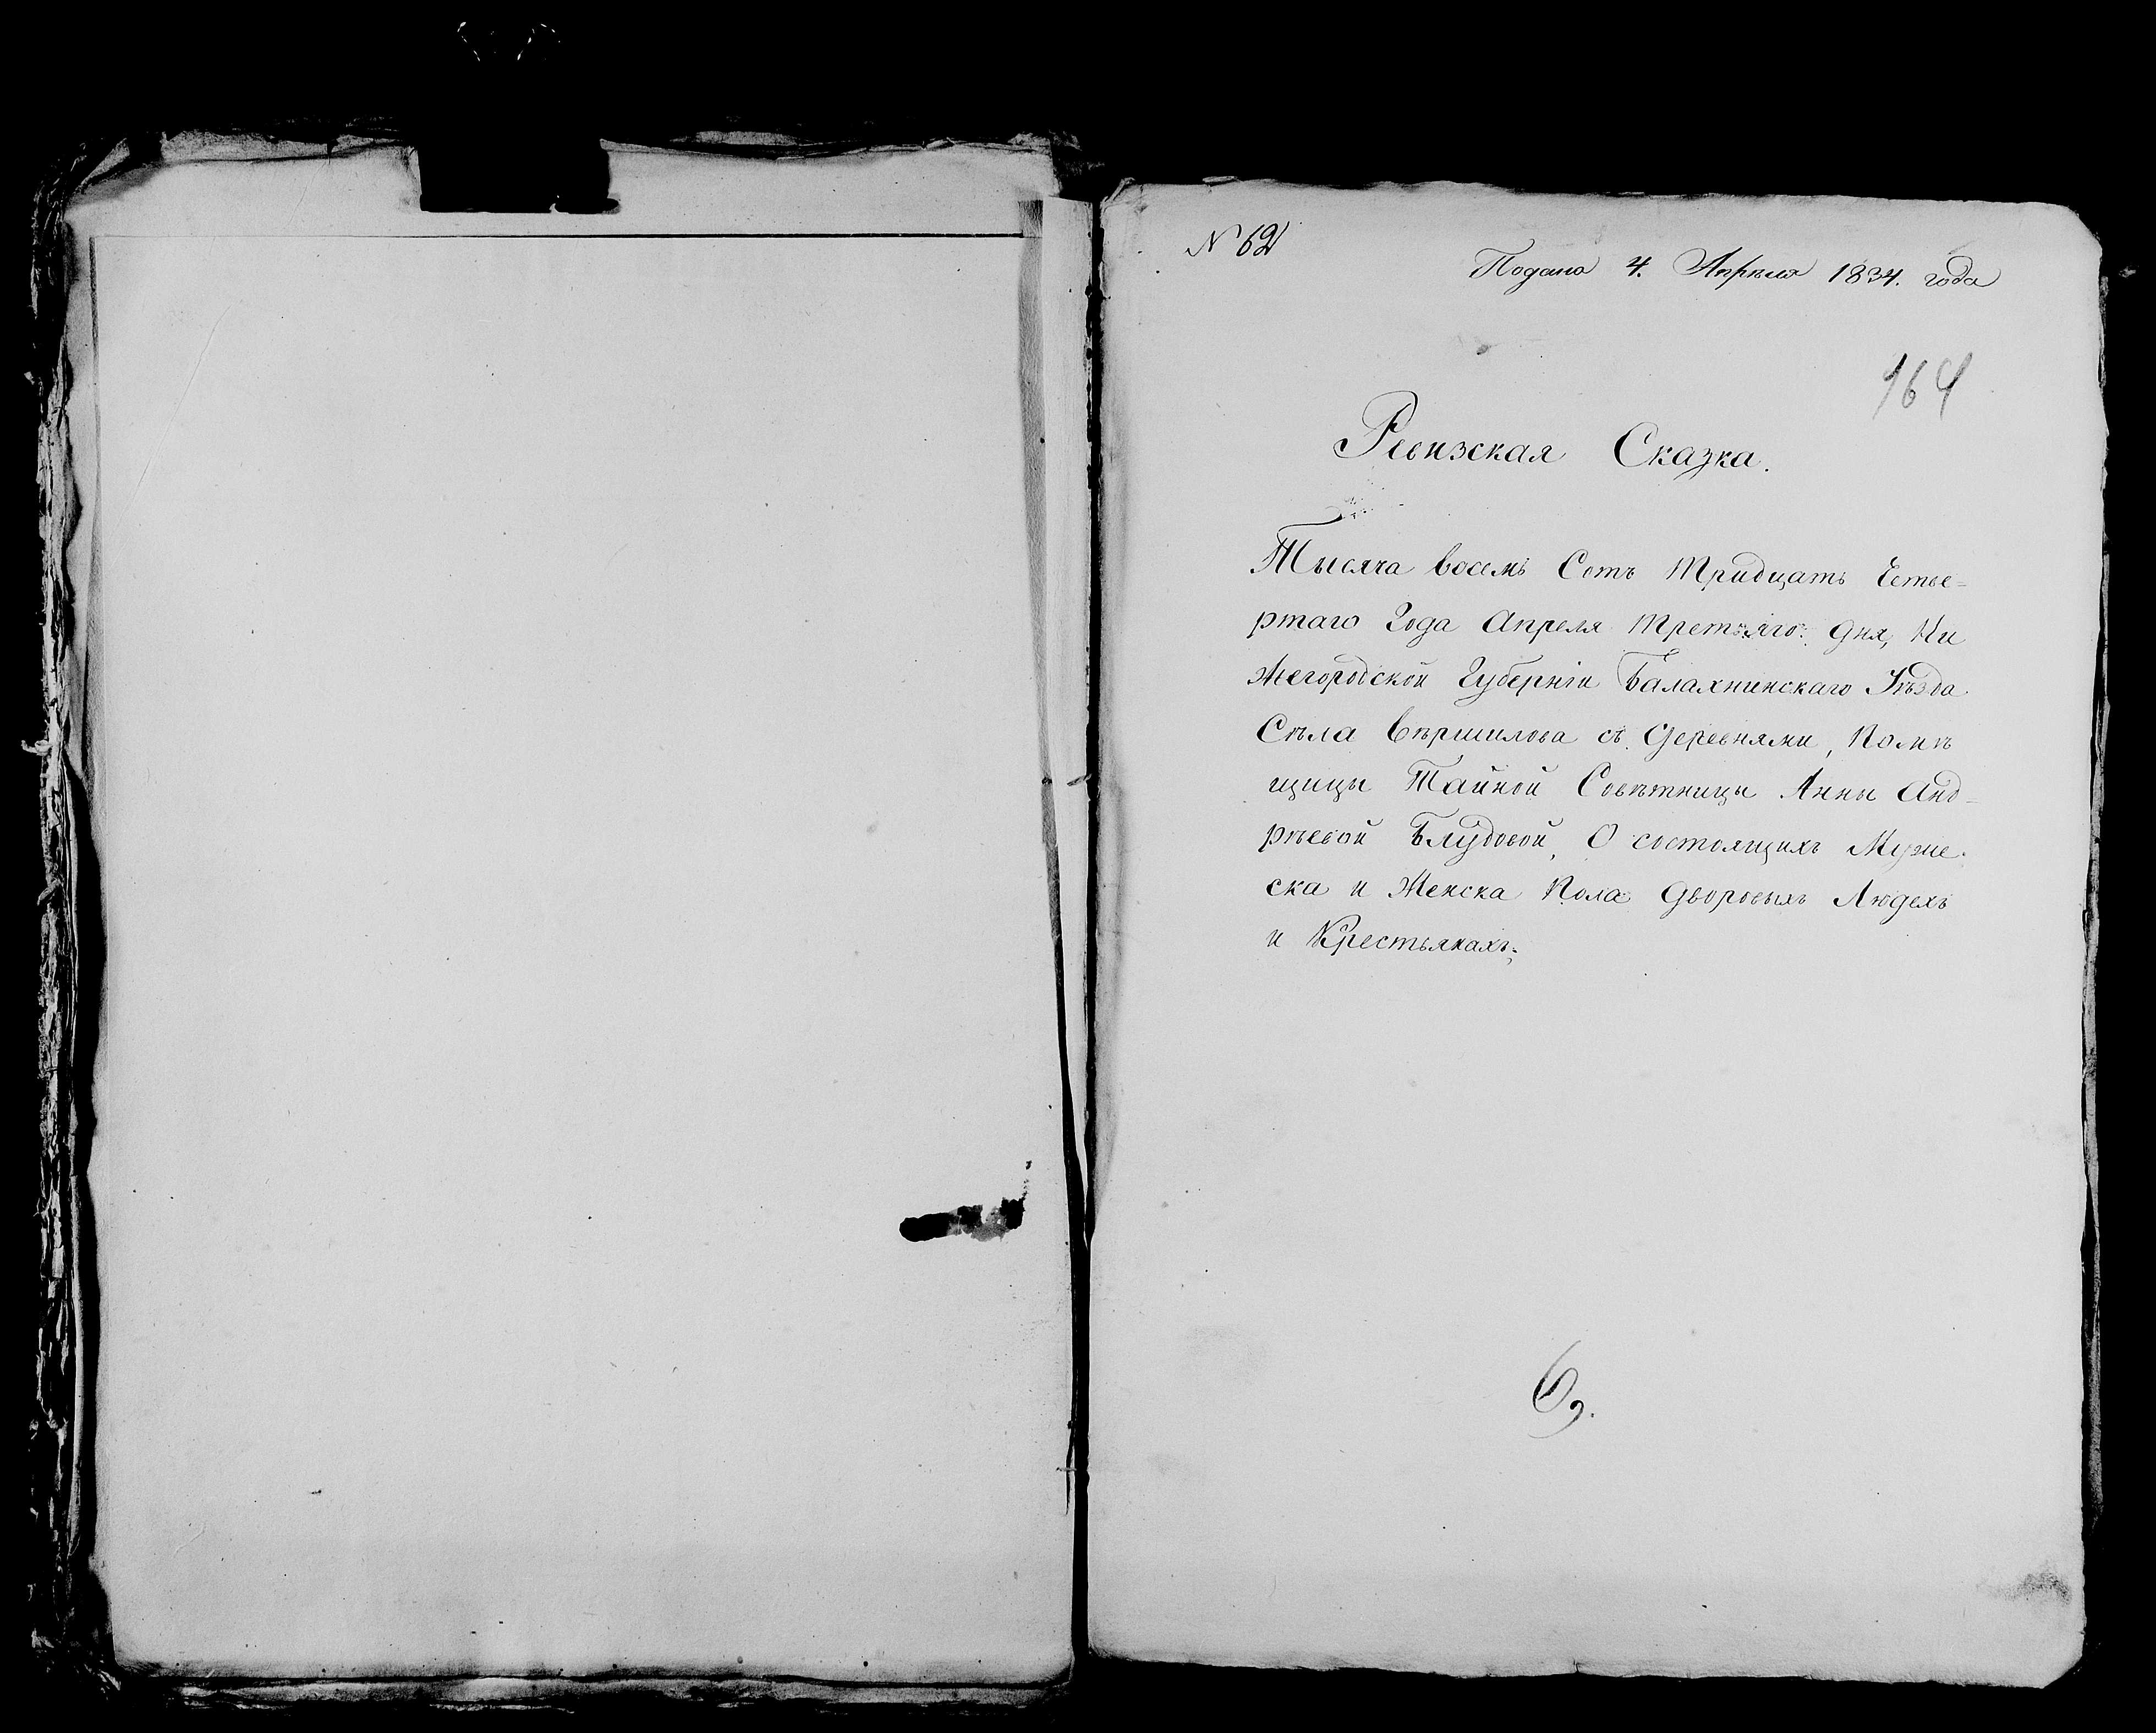 N 62
Подано 4. Апрѣля 1834. года
164
Ревизская Сказка.
Тысяча восемь Сотъ Тридцать Четве-
ртаго Года Апреля Третьяго дня, Ни
жегородской Губерніи Балахнинскаго Уѣзда
Сѣла Вѣршилова съ Деревнями, Помѣ
щицы Тайной Совѣтницы Анны Анд-
рѣевой Блудовой, О состоящихъ Муже-
ска и Женска Пола Дворовыхъ Людехъ
и Крестьянахъ;